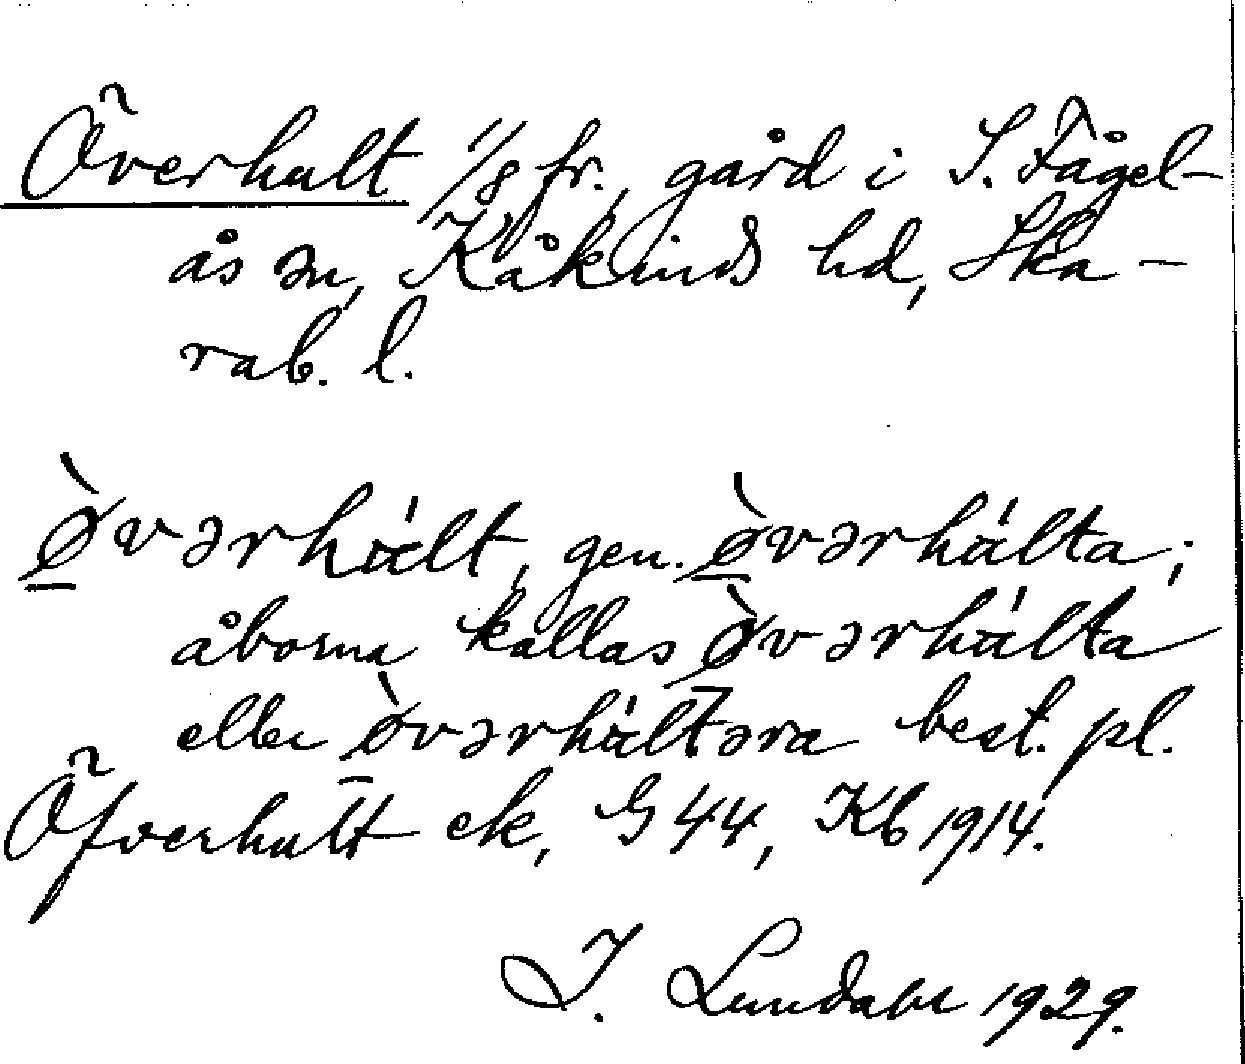 Överhult 1/8 fr., gård i S. Fågel-
ås sn, Kåkinds hd, Ska-
rab. l.
ø̀vərhúlt, gen. ø̀vərhúlta;
åborna kallas ø̀vərhúlta
eller ø̀vərhúltəra best. pl.
Öfverhult ek, G 44, Kb 1914.
I. Lundahl 1929.